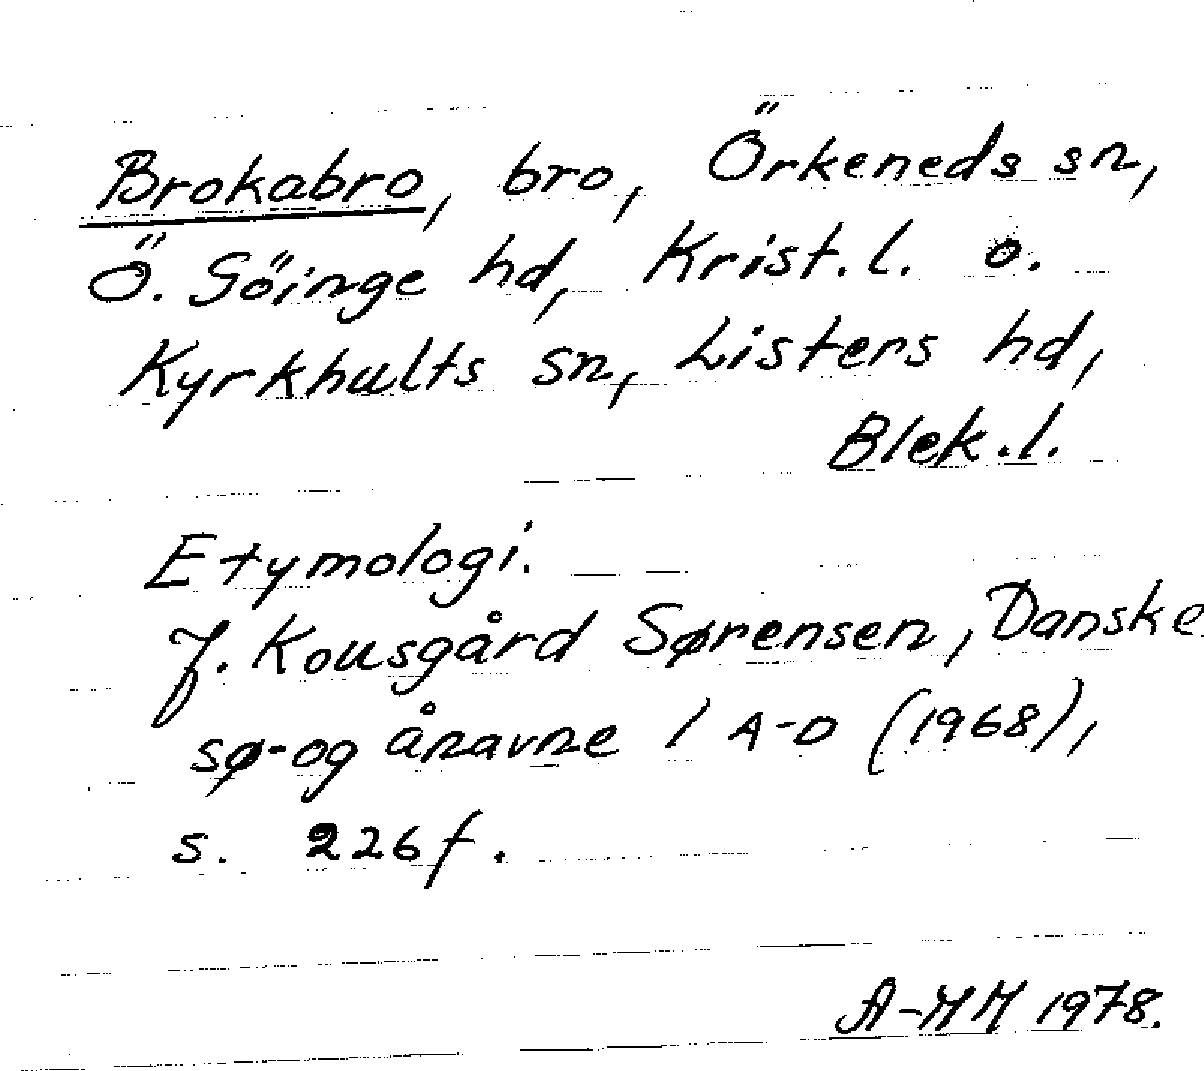 Brokabro, bro, Örkeneds sn,
Ö. Göinge hd, Krist. l. o.
Kyrkhults sn, Listers hd,
Blek. l.
Etymologi.
J. Kousgård Sørensen, Danske
sø- og ånavne 1 A-D (1968),
s. 226 f.
A-MM 1978.